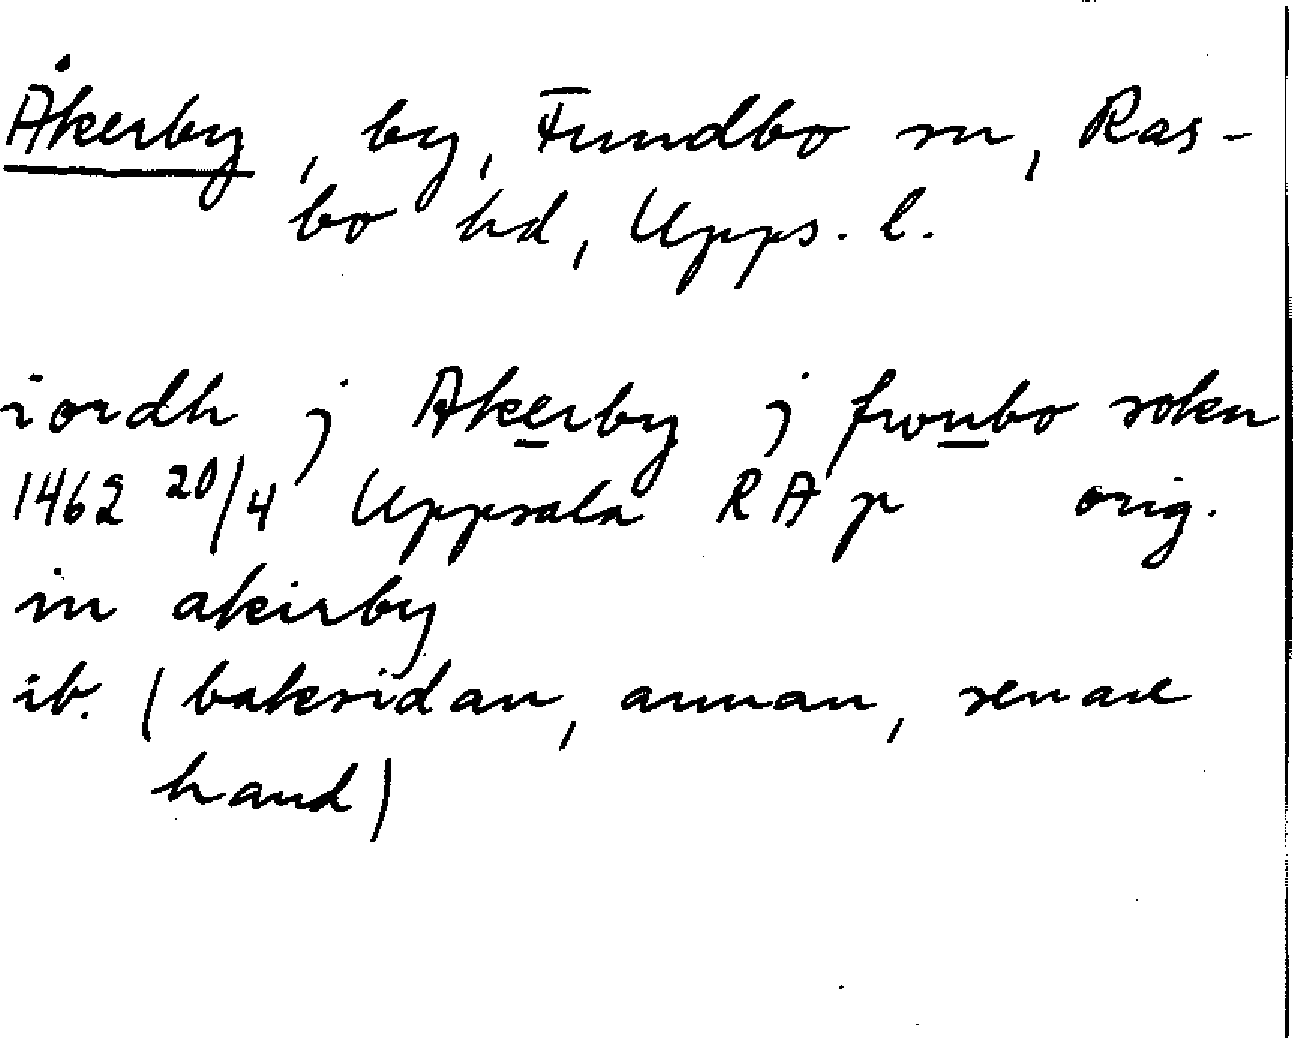 Åkerby, by, Fundbo sn, Ras-
bo hd, Upps. l.
iordh j Akerby j fwnbo sokn
1462 20/4 Uppsala RAp orig.
in akirby
ib. (baksidan, annan, senare
hand)